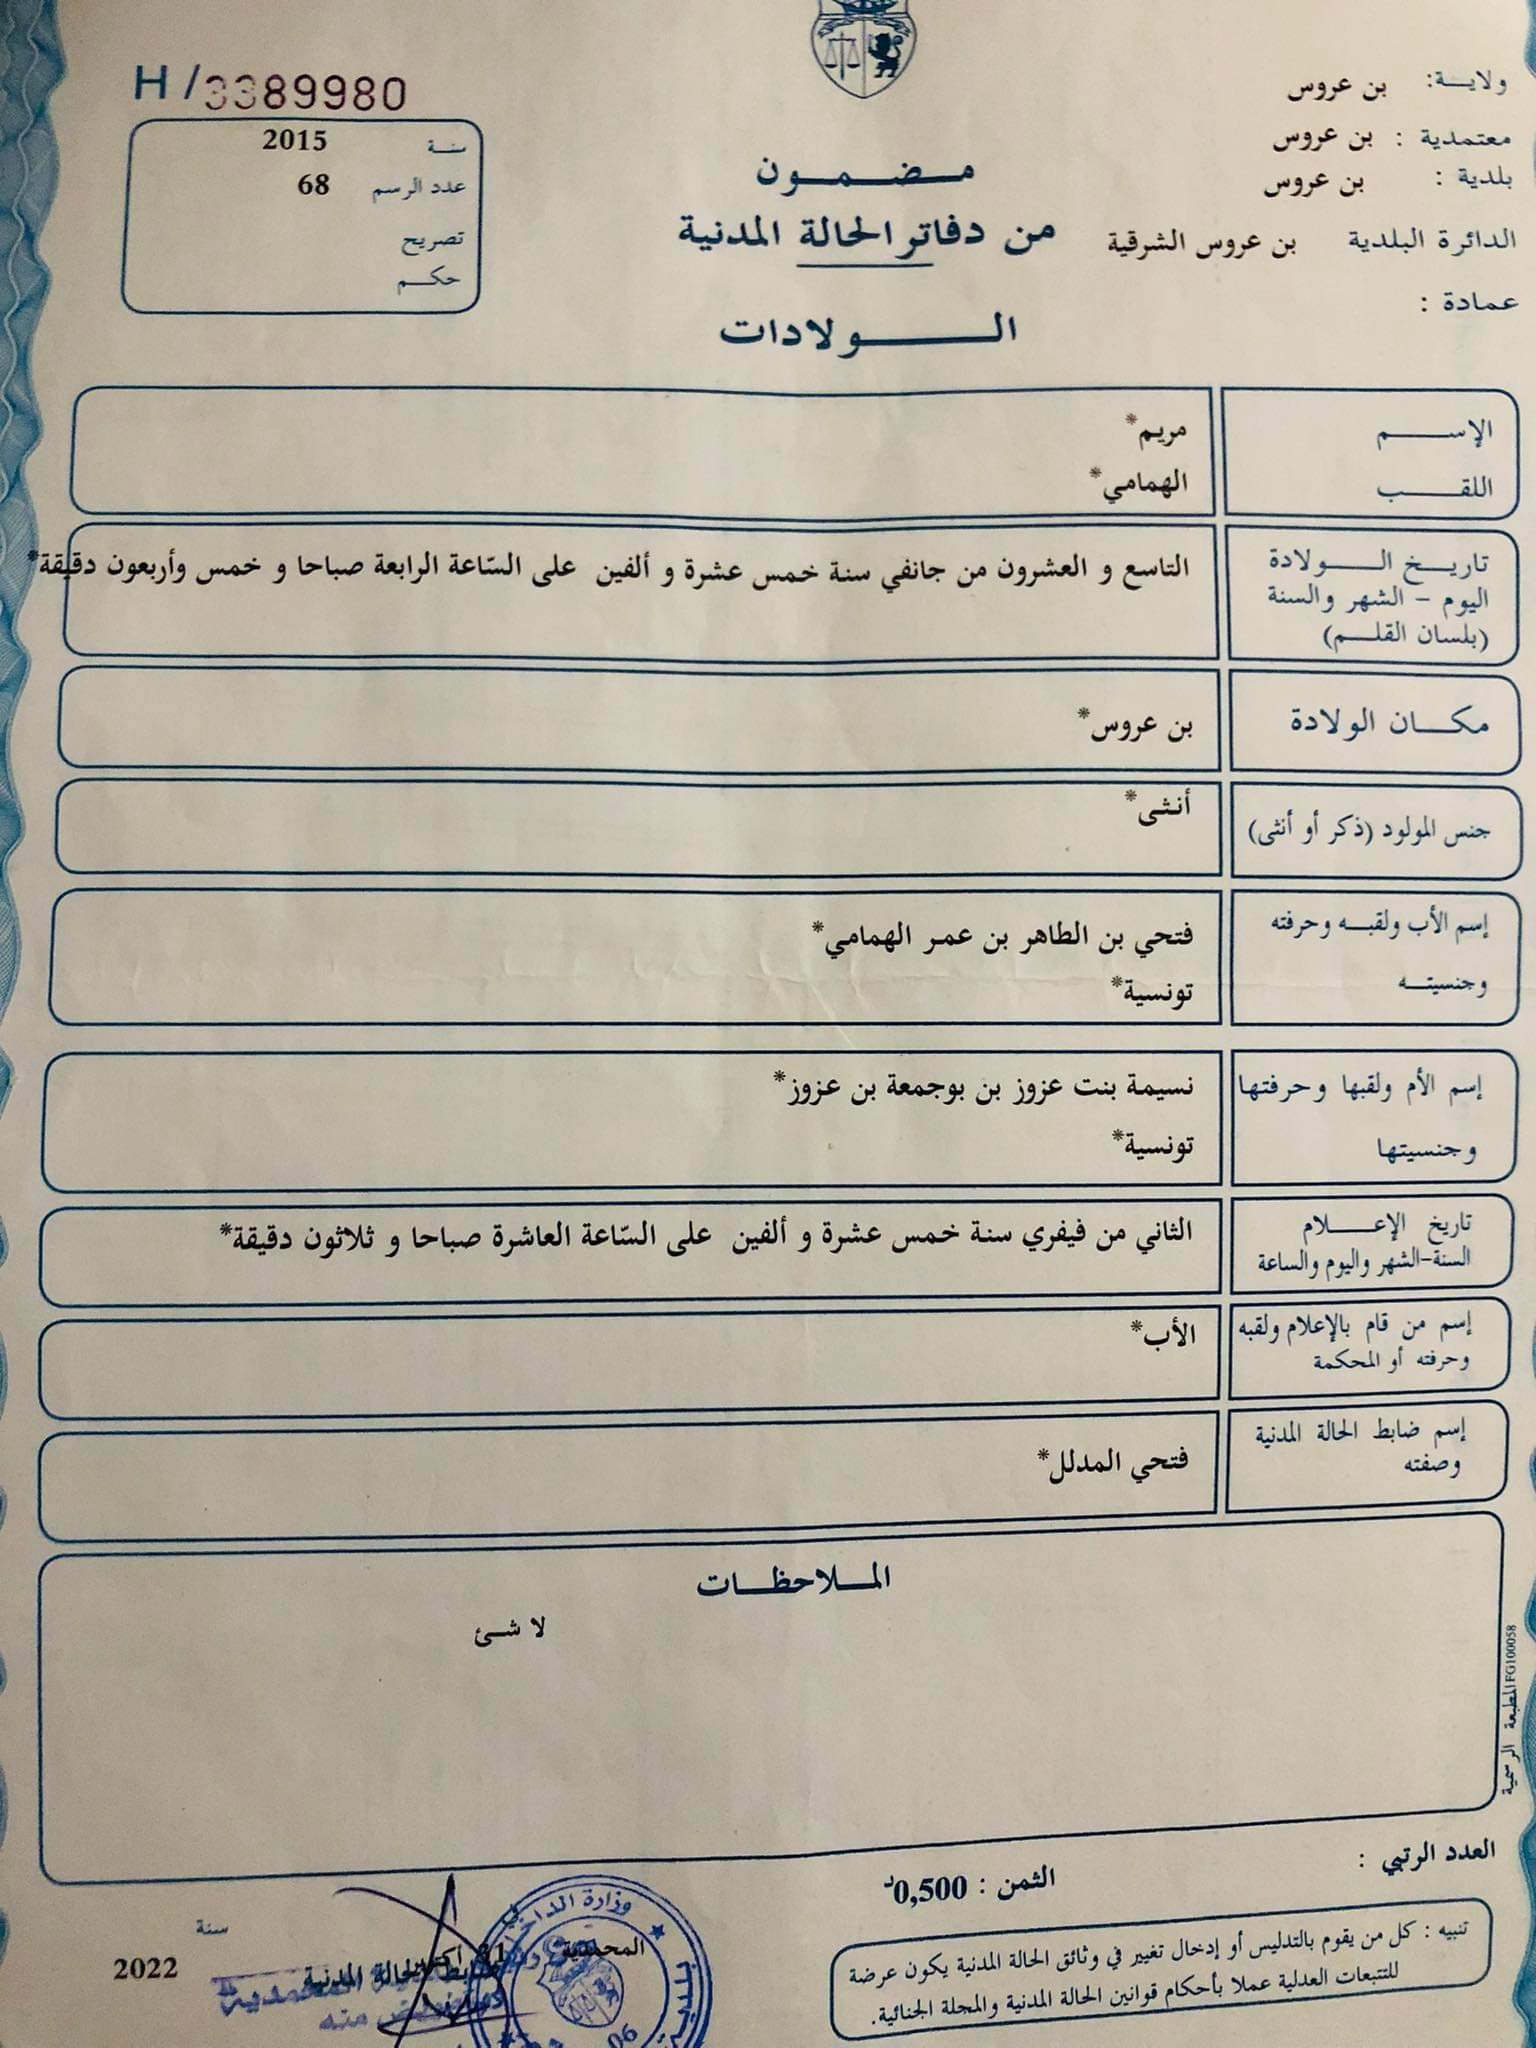 H/3389980
سنة 2015
عدد الرسم 68
تصريح
حكم
ولاية: بن عروس
معتمدية : بن عروس
بلدية : بن عروس
الدائرة البلدية بن عروس الشرقية
عمادة :
مضمون
من دفاتر الحالة المدنية
الولادات
الإسم مريم*
اللقب الهمامي*
تاريخ الولادة
اليوم - الشهر والسنة
(بلسان القلم)
التاسع و العشرون من جانفي سنة خمس عشرة و ألفين على السّاعة الرابعة صباحا و خمس وأربعون دقيقة*
مكان الولادة بن عروس*
جنس المولود (ذكر أو أنثى) أنثى*
إسم الأب ولقبه وحرفته فتحي بن الطاهر بن عمر الهمامي*
وجنسيته تونسية*
إسم الأم ولقبها وحرفتها نسيمة بنت عزوز بن بوجمعة بن عزوز*
وجنسيتها تونسية*
تاريخ الإعلام
السنة-الشهر واليوم والساعة
الثاني من فيفري سنة خمس عشرة و ألفين على السّاعة العاشرة صباحا و ثلاثون دقيقة*
إسم من قام بالإعلام ولقبه
وحرفته أو المحكمة
الأب*
إسم ضابط الحالة المدنية
وصفته
فتحي المدلل*
الملاحظات
لا شئ
المطبعة الرسمية FG100058
العدد الرتبي :
الثمن : 0,500د
تنبيه : كل من يقوم بالتدليس أو إدخال تغيير في وثائق الحالة المدنية يكون عرضة
للتتبعات العدلية عملا بأحكام قوانين الحالة المدنية والمجلة الجنائية.
المحمدية
سنة
2022
ضابط الحالة المدنية
وزارة الداخلية